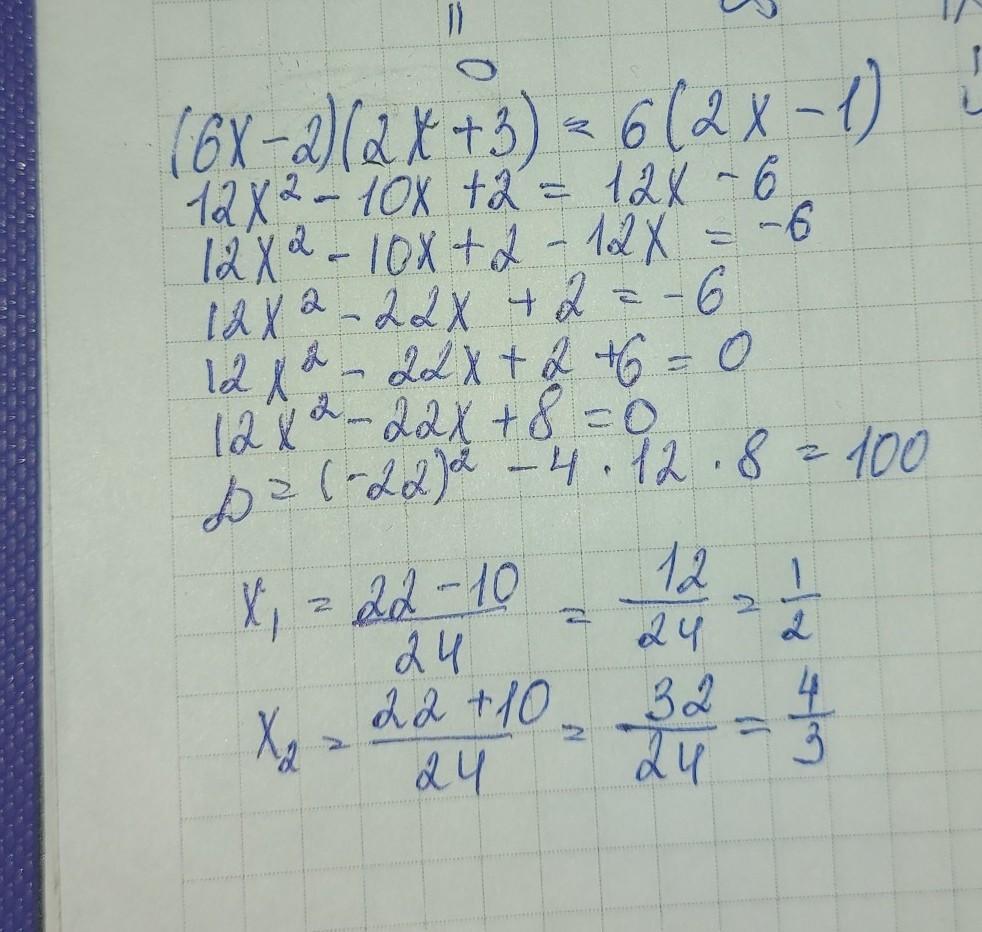 ||
0
(6x-2)(2x+3) = 6(2x-1)
12x² - 10x + 2 = 12x - 6
12x² - 10x + 2 - 12x = -6
12x² - 22x + 2 = -6
12x² - 22x + 2 + 6 = 0
12x² - 22x + 8 = 0
D = (-22)² - 4 · 12 · 8 = 100
x₁ = (22 - 10)/24 = 12/24 = 1/2
x₂ = (22 + 10)/24 = 32/24 = 4/3